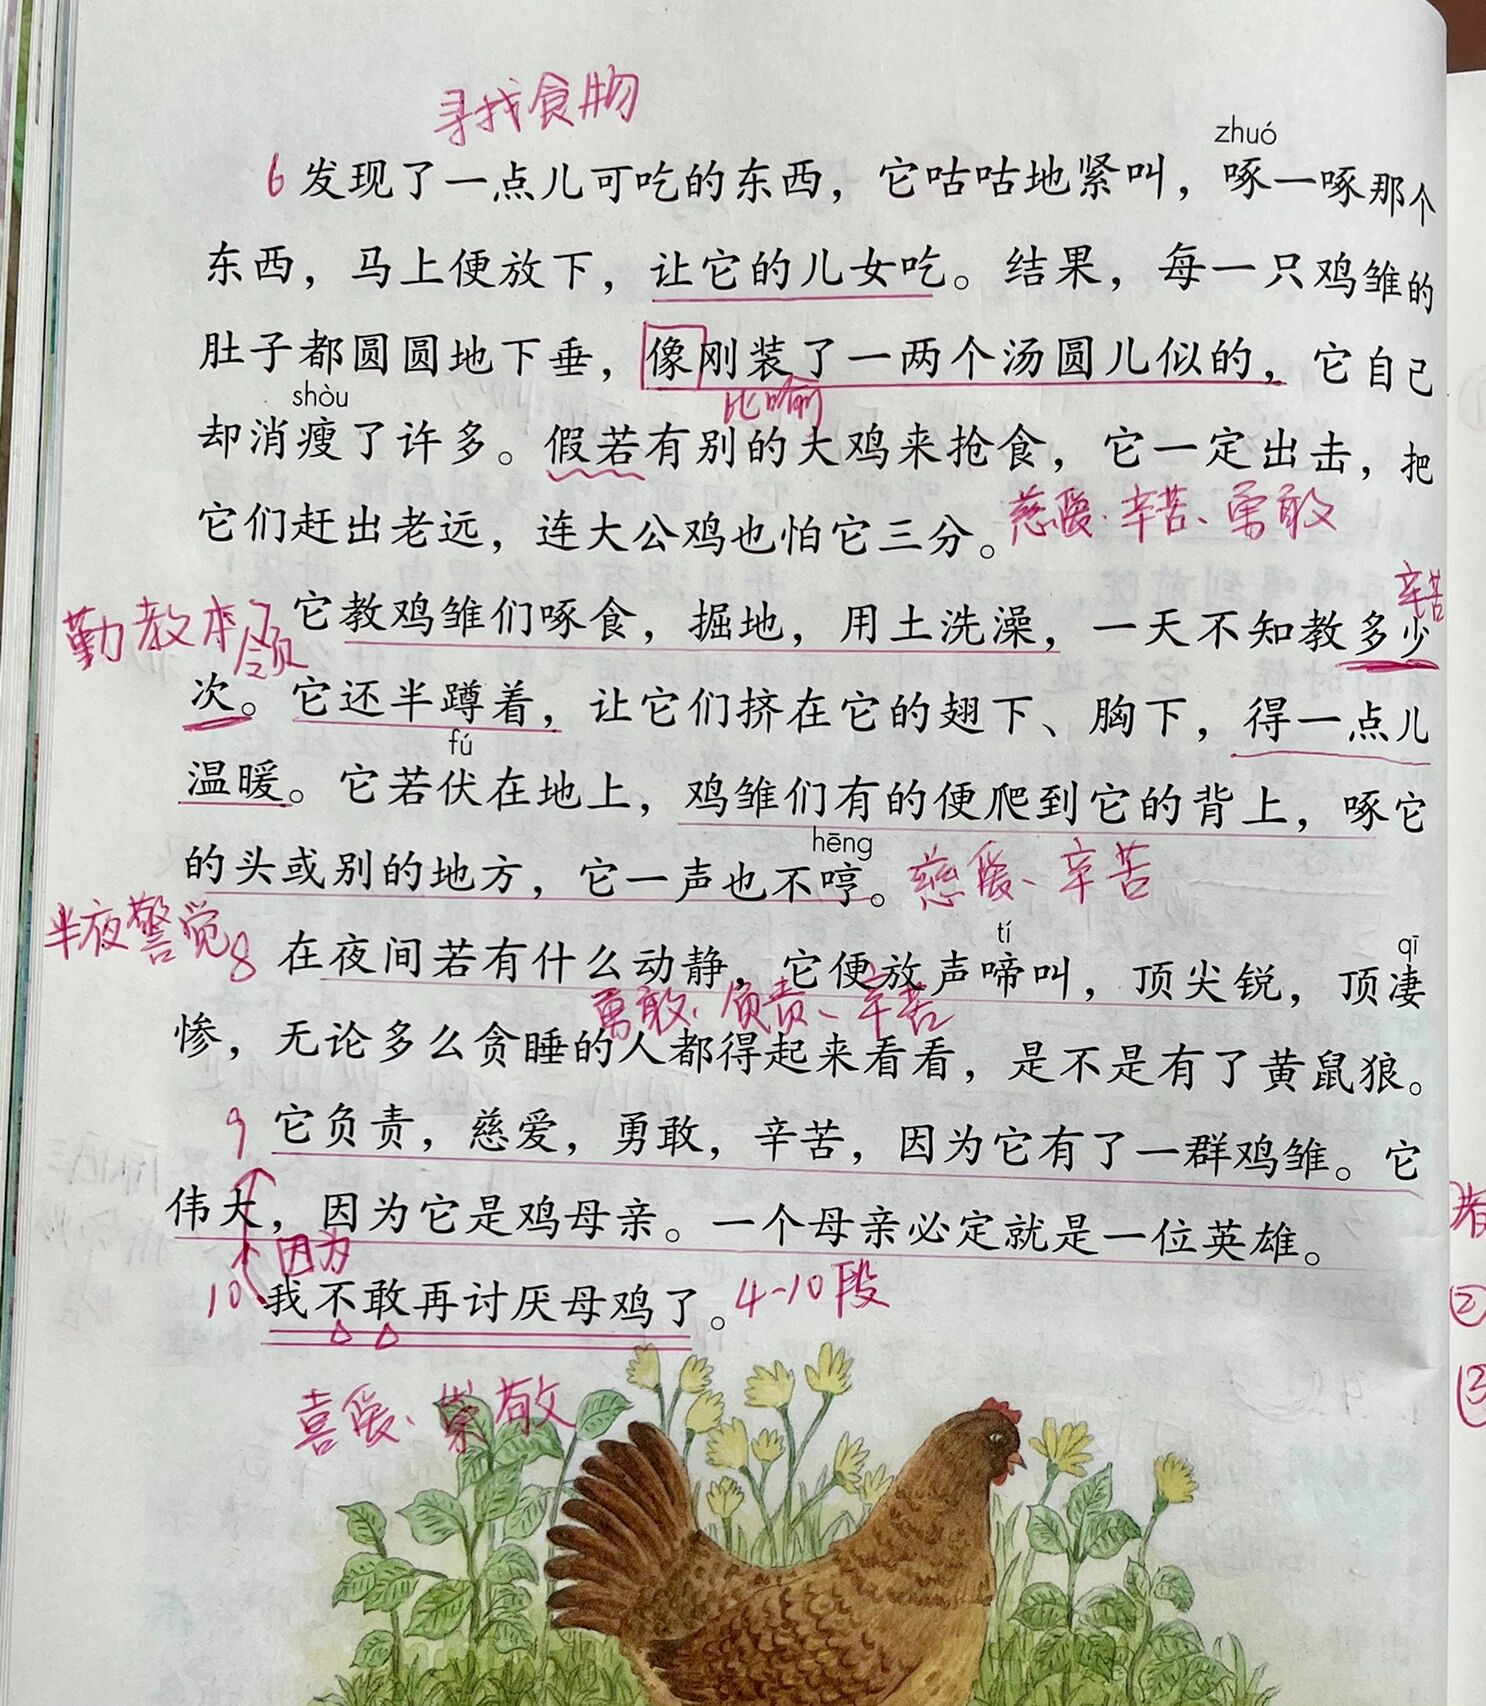 寻找食物
zhuó
6 发现了一点儿可吃的东西，它咕咕地紧叫，啄一啄那个
东西，马上便放下，让它的儿女吃。结果，每一只鸡雏的
肚子都圆圆地下垂，像刚装了一两个汤圆儿似的，它自己
shòu
比喻
却消瘦了许多。假若有别的大鸡来抢食，它一定出击，把
它们赶出老远，连大公鸡也怕它三分。慈爱、辛苦、勇敢
辛苦
勤教本领
7 它教鸡雏们啄食，掘地，用土洗澡，一天不知教多少
次。它还半蹲着，让它们挤在它的翅下、胸下，得一点儿
fú
温暖。它若伏在地上，鸡雏们有的便爬到它的背上，啄它
hēng
的头或别的地方，它一声也不哼。慈爱、辛苦
半夜警觉
tí qī
8 在夜间若有什么动静，它便放声啼叫，顶尖锐，顶凄
勇敢、负责、辛苦
惨，无论多么贪睡的人都得起来看看，是不是有了黄鼠狼。
9 它负责，慈爱，勇敢，辛苦，因为它有了一群鸡雏。它
伟大，因为它是鸡母亲。一个母亲必定就是一位英雄。
因为
10 我不敢再讨厌母鸡了。4-10段
喜爱、崇敬
②
③